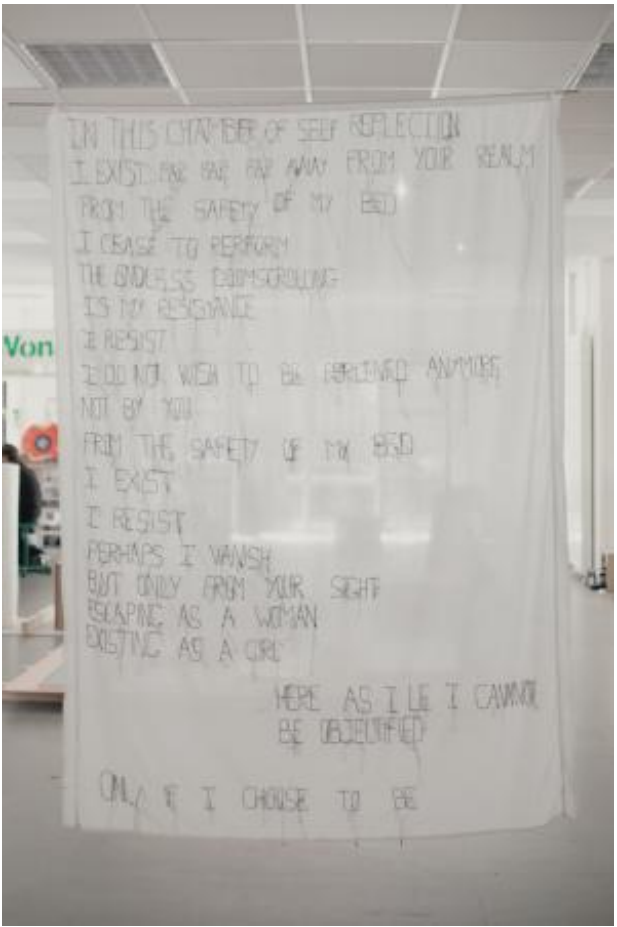 IN THIS CHAMBER OF SELF REFLECTION
I EXIST FAR FAR FAR AWAY FROM YOUR REALM
FROM THE SAFETY OF MY BED
I CEASE TO PERFORM
THE ENDLESS DOOMSCROLLING
IS MY RESISTANCE
I RESIST
I DO NOT WISH TO BE PERCIEVED ANYMORE
NOT BY YOU
FROM THE SAFETY OF MY BED
I EXIST
I RESIST
PERHAPS I VANISH
BUT ONLY FROM YOUR SIGHT
ESCAPING AS A WOMAN
EXISTING AS A GIRL
HERE AS I LIE I CANNOT
BE OBJECTIFIED
ONLY IF I CHOOSE TO BE
Von